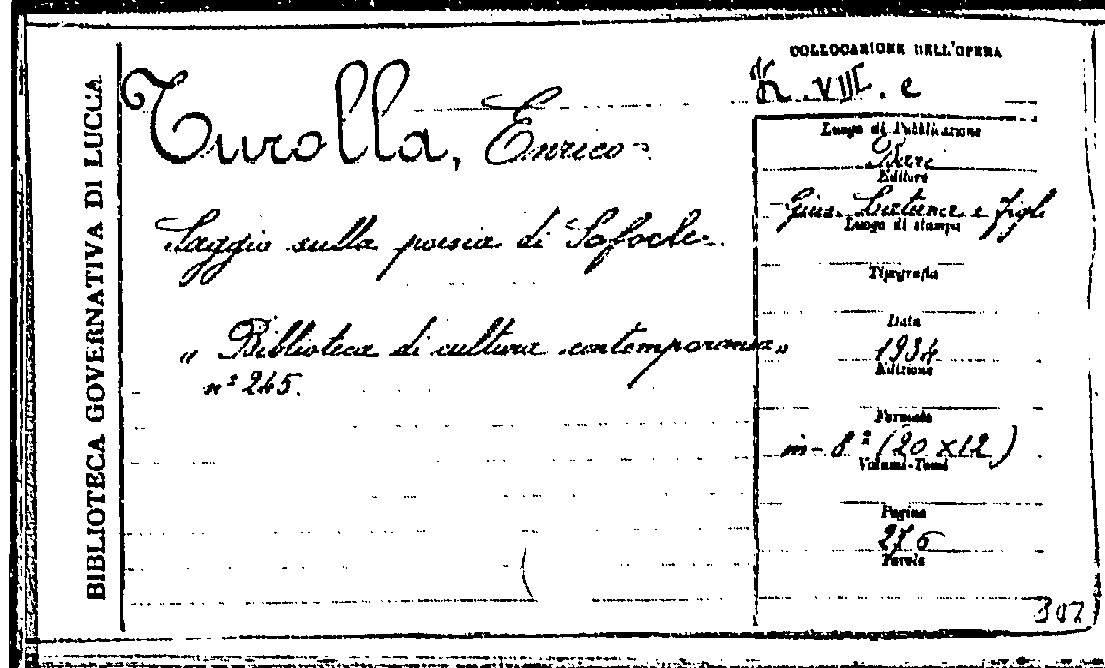 BIBLIOTECA GOVERNATIVA DI LUCCA
Turolla, Enrico
Saggio sulla poesia di Sofocle.
"Biblioteca di cultura contemporanea"
nº 245.
COLLOCAZIONE DELL'OPERA
K. VIII. e
Luogo di Pubblicazione
Editore
e figli
Luogo di stampa
Tipografia
Data
1934
Edizione
Formato
in-8º (20 x 12)
Volumi-Tomi
Pagine
276
Tavole
307